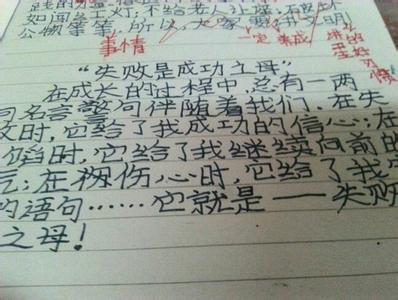 如闯红灯,不给老人让座,
公物等等,所以,大家要讲文明
事情
一定 养成
“失败是成功之母”
在成长的过程中,总有一两
句名言警句伴随着我们.在失
败时,它给了我成功的信心;在
陷时,它给了我继续向前的
气;在我伤心时,它给了我安
的语句……它就是——失败
之母!